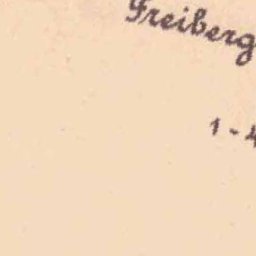 Freiberg
1-4